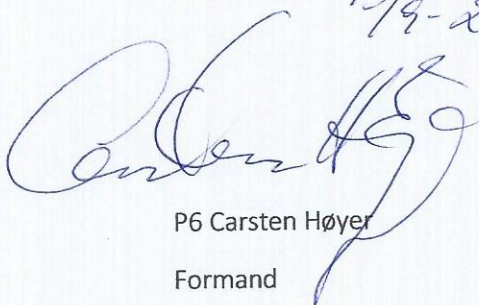 Carsten Høyer
P6 Carsten Høyer
Formand